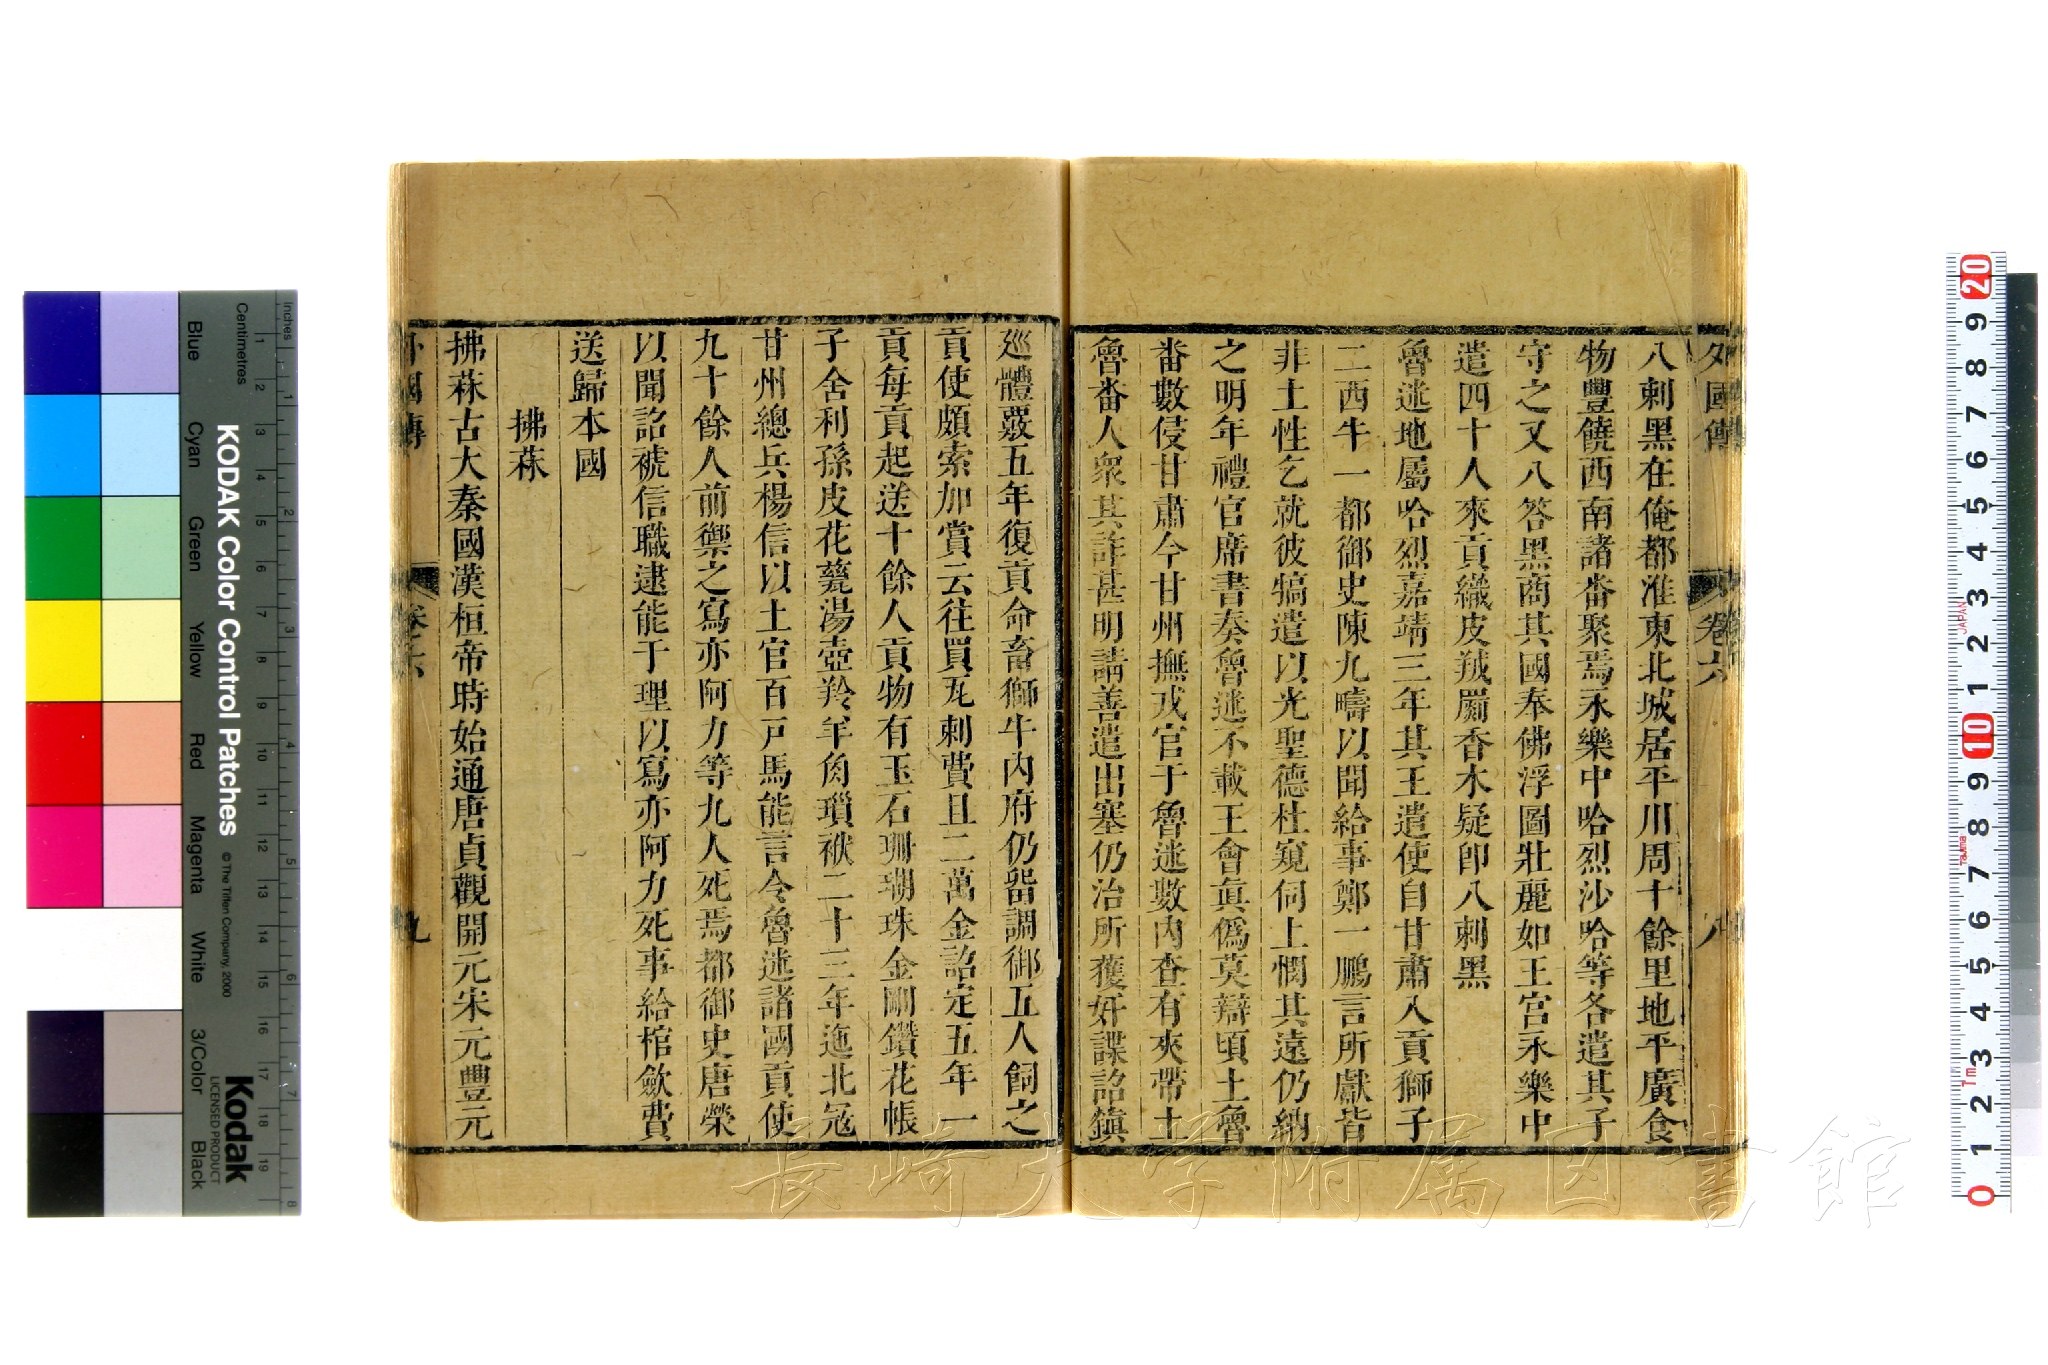 外國傳
卷六
八
八剌黑在俺都淮東北城居平川周十餘里地平廣食
物豐饒西南諸畨聚焉永樂中哈烈沙哈等各遣其子
守之又八答黑商其國奉佛浮圖壯麗如王宮永樂中
遣四十人來貢織皮羢罽香木疑卽八剌黑
魯迷地屬哈烈嘉靖三年其王遣使自甘肅入貢獅子
二西牛一都御史陳九疇以聞給事鄭一鵬言所獻皆
非土性乞就彼犒遣以光聖德杜窺伺上憫其遠仍納
之明年禮官席書奏魯迷不載王會眞僞莫辯頃土魯
畨數侵甘肅今甘州撫戎官于魯迷數內查有夾帶土
魯畨人衆其詐甚明請善遣出塞仍治所獲奸諜詔鎭
廵體覈五年復貢命畜獅牛內府仍畱調御五人飼之
貢使頗索加賞云往買瓦剌費且二萬金詔定五年一
貢每貢起送十餘人貢物有玉石珊瑚珠金剛鑽花帳
子舍利孫皮花甆湯壺羚羊角瑣袱二十三年迤北冦
甘州總兵楊信以土官百戸馬能言令魯迷諸國貢使
九十餘人前禦之寫亦阿力等九人死焉都御史唐榮
以聞詔褫信職逮能于理以寫亦阿力死事給棺斂費
送歸本國
拂菻
拂菻古大秦國漢桓帝時始通唐貞觀開元宋元豐元
外國傳
卷之六
九
長崎大学附属図書館
KODAK Color Control Patches
© The Tiffen Company, 2000
Kodak
LICENSED PRODUCT
Inches
Centimetres
Blue
Cyan
Green
Yellow
Red
Magenta
White
3/Color
Black
1 2 3 4 5 6 7 8 9 10 11 12 13 14 15 16 17 18 19
1 2 3 4 5 6 7 8
20 9 8 7 6 5 4 3 2 1 10 9 8 7 6 5 4 3 2 1 0
JAPAN
Tajima
1m